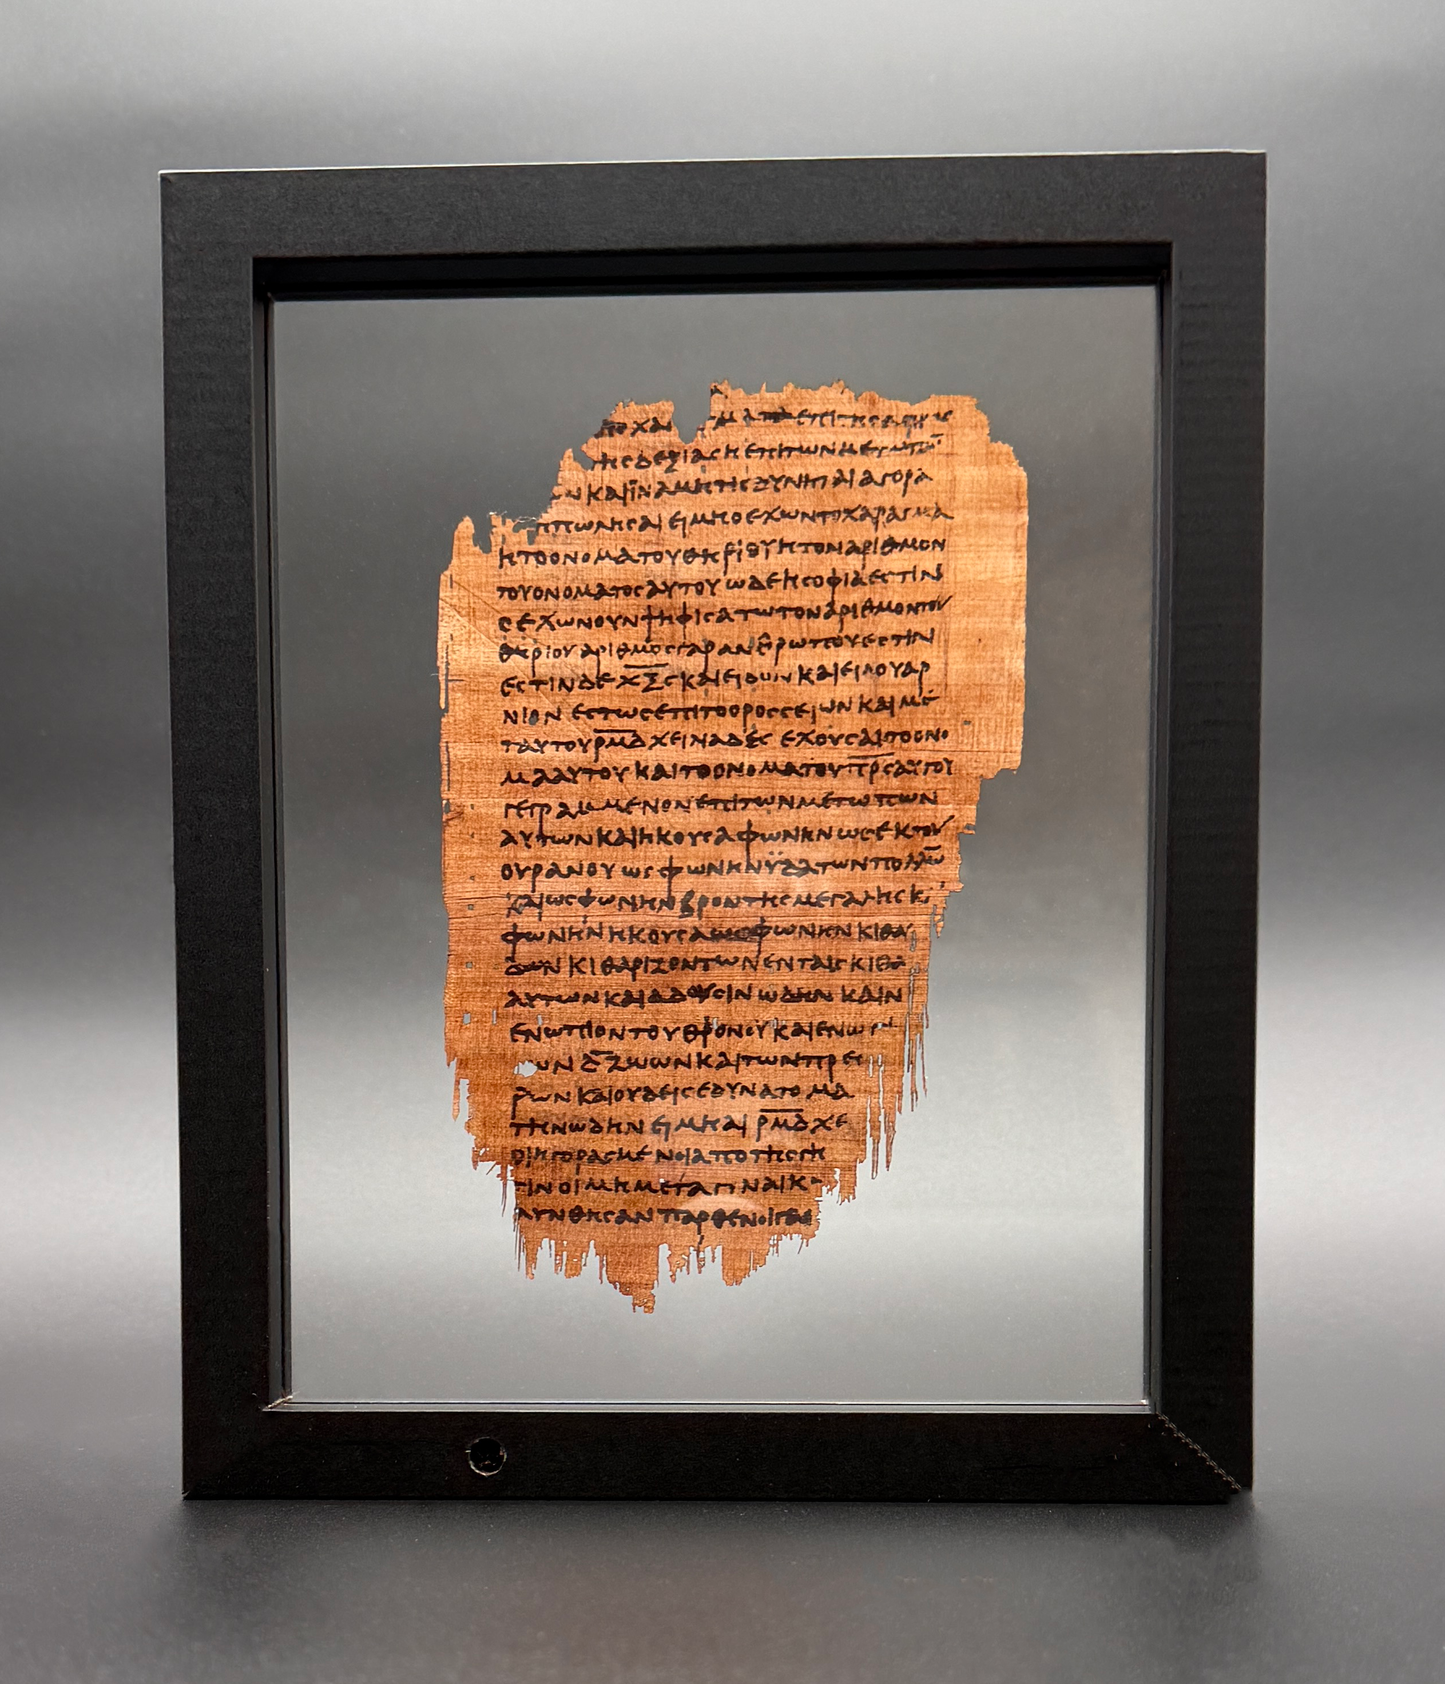 χαι
της δεξιας η επι των μετωπω̅
και ϊνα μη τις δυνηται αγορα
η πωλησαι ει μη ο εχων το χαραγμα
η το ονομα του θηριου η τον αριθμον
του ονοματος αυτου ωδε η σοφια εστιν
ο εχων ουν ψηφισατω τον αριθμον του
θηριου αριθμος γαρ ανθρωπου εστιν
εστιν δε χ̅ξ̅ϛ̅ και ειδον και ειδου αρ
νιον εστως επι το ορος σειων και με
τ αυτου ρ̅μ̅δ̅ χειλιαδες εχουσαι το ονο
μα αυτου και το ονομα του π̅ρ̅ς̅ αυτου
γεγραμμενον επι των μετωπων
αυτων και ηκουσα φωνην ως εκ του
ουρανου ως φωνην ϋδατων πολλω̅
και ως φωνην βροντης μεγαλης κ
φωνην ηκουσα ως φωνην κιθα
δων κιθαριζοντων εν ταις κιθα
αυτων και αδουσιν ωδην καιν
ενωπιον του θρονου και ενω
ων δ̅ ζωων και των πρε
ρων και ουδεις εδυνατο μα
την ωδην ει μη αι ρ̅μ̅δ̅ χε
οι ηγορασμενοι απο της γη
οι μη μετα γυναικ
λυνθησαν παρθενοι